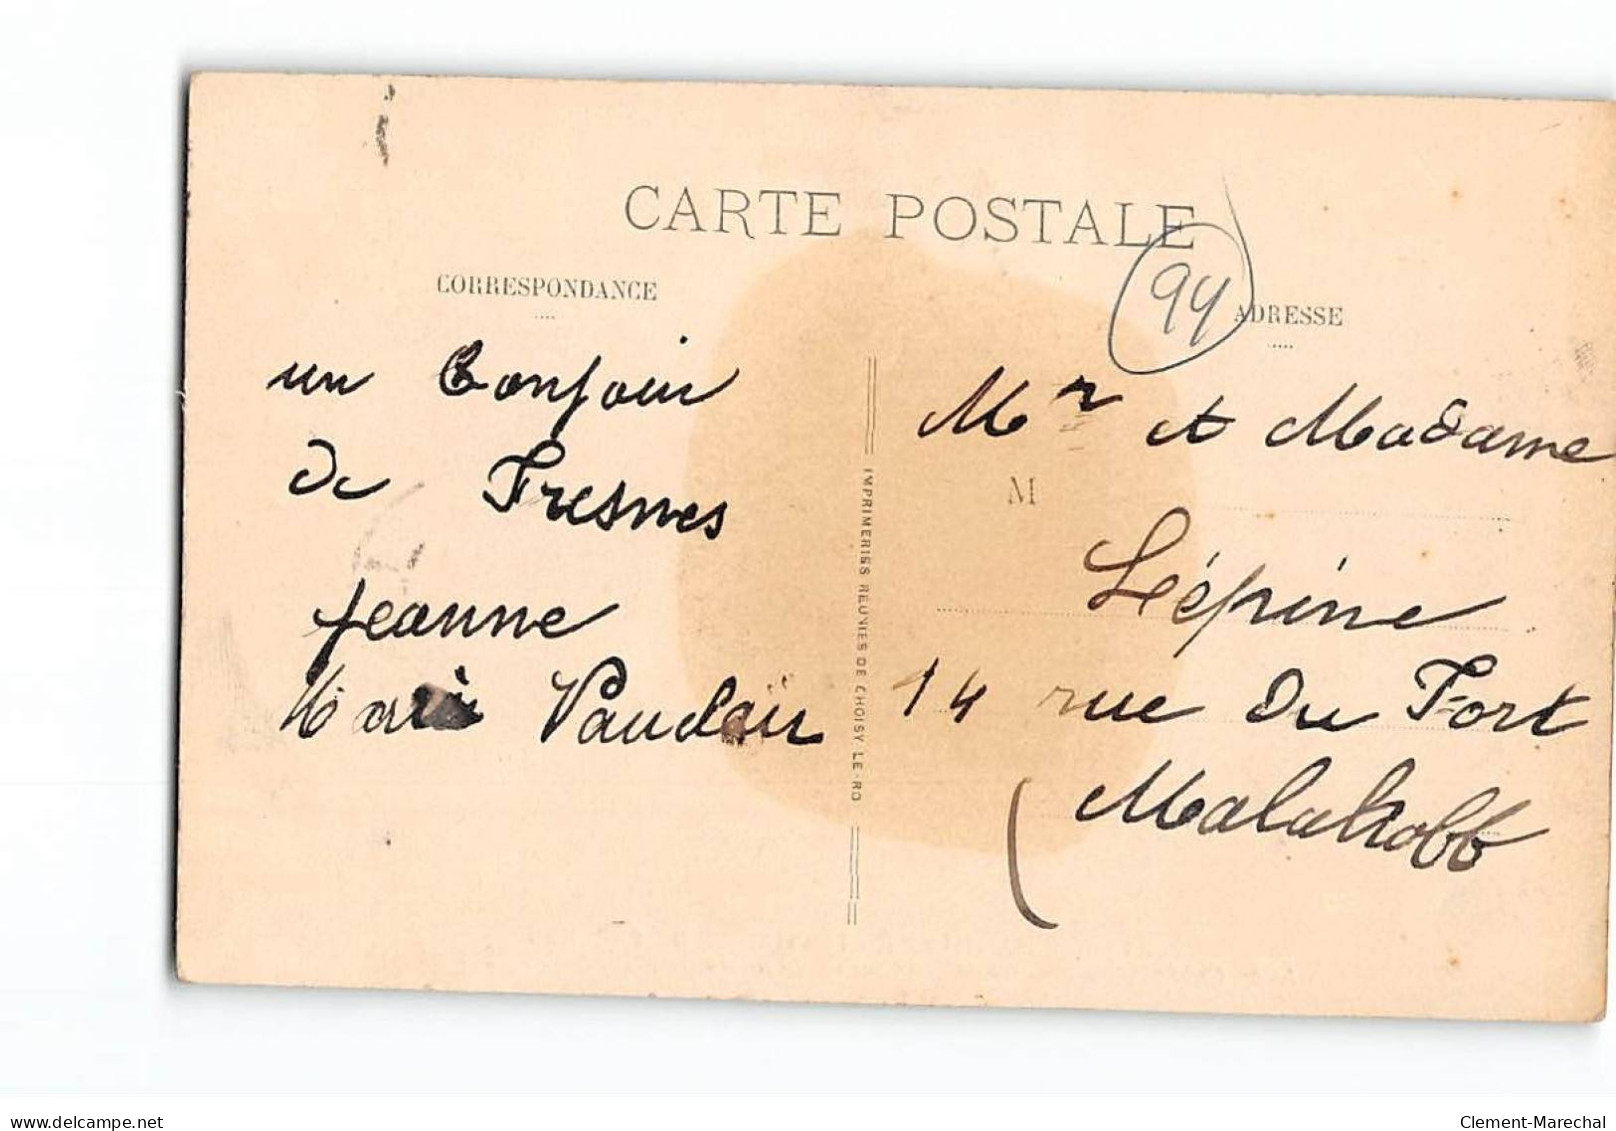 CARTE POSTALE
94
CORRESPONDANCE
ADRESSE
un Bonjour
de Fresnes
Jeanne
Marie
IMPRIMERIES RÉUNIES DE CHOISY-LE-RO
Mr et Madame
M
Lépine
14 rue du Fort
Malakoff
delcampe.net
Clement-Marechal